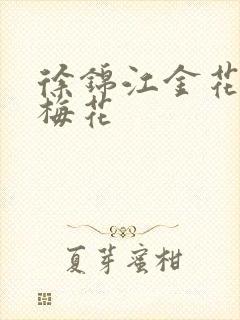 徐锦江金花
梅花
夏芽蜜柑